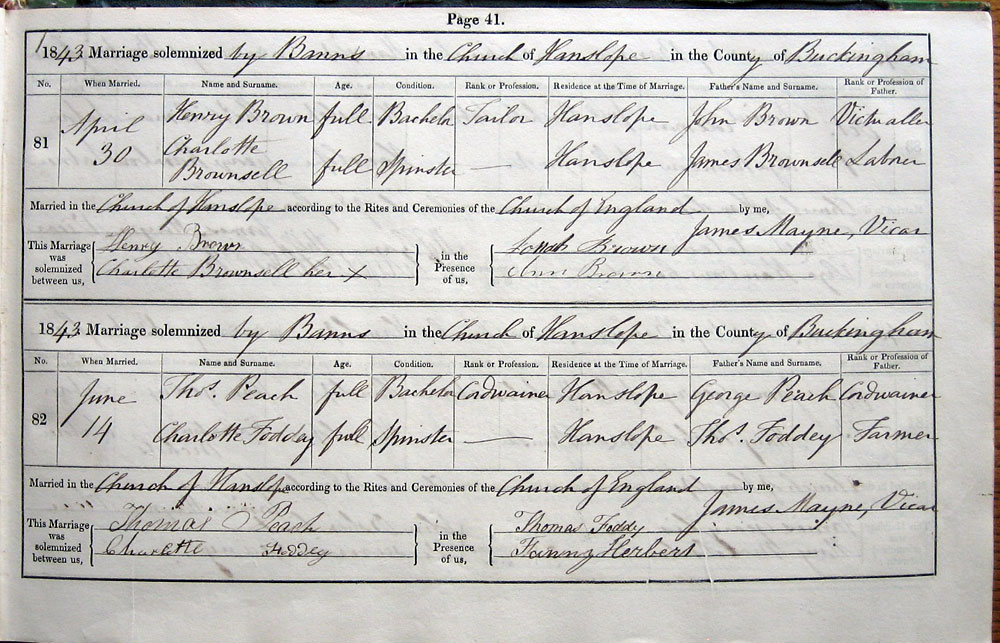 Page 41.
1843 Marriage solemnized by Banns in the Church of Hanslope in the County of Buckingham
No. When Married. Name and Surname. Age. Condition. Rank or Profession. Residence at the Time of Marriage. Father's Name and Surname. Rank or Profession of Father.
81 April 30 Henry Brown full Bachelor Tailor Hanslope John Brown Victualler
Charlotte Brownsell full Spinster — Hanslope James Brownsell Labourer
Married in the Church of Hanslope according to the Rites and Ceremonies of the Church of England by me,
James Mayne, Vicar
This Marriage was solemnized between us, Henry Brown in the Presence of us, Brown
Charlotte Brownsell her X Ann Brown
1843 Marriage solemnized by Banns in the Church of Hanslope in the County of Buckingham
No. When Married. Name and Surname. Age. Condition. Rank or Profession. Residence at the Time of Marriage. Father's Name and Surname. Rank or Profession of Father.
82 June 14 Thos. Peach full Bachelor Cordwainer Hanslope George Peach Cordwainer
Charlotte Foddey full Spinster — Hanslope Thos. Foddey Farmer
Married in the Church of Hanslope according to the Rites and Ceremonies of the Church of England by me,
James Mayne, Vicar
This Marriage was solemnized between us, Thomas Peach in the Presence of us, Thomas Foddy
Charlotte Foddey Fanny Herbert